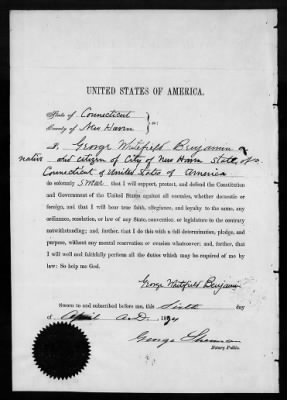 UNITED STATES OF AMERICA.
State of Connecticut
County of New Haven } ss:
I, George Whitfield Benjamin a
native and citizen of City of New Haven State of
Connecticut of United States of America
do solemnly swear that I will support, protect, and defend the Constitution
and Government of the United States against all enemies, whether domestic
or foreign, and that I will bear true faith, allegiance, and loyalty to the same, any
ordinance, resolution, or law of any State, convention, or legislature to the contrary
notwithstanding; and, further, that I do this with a full determination, pledge, and
purpose, without any mental reservation or evasion whatsoever; and, further, that
I will well and faithfully perform all the duties which may be required of me by
law: So help me God.
George Whitfield Benjamin
Sworn to and subscribed before me, this Sixth day
of April A.D. 18
George
Notary Public.